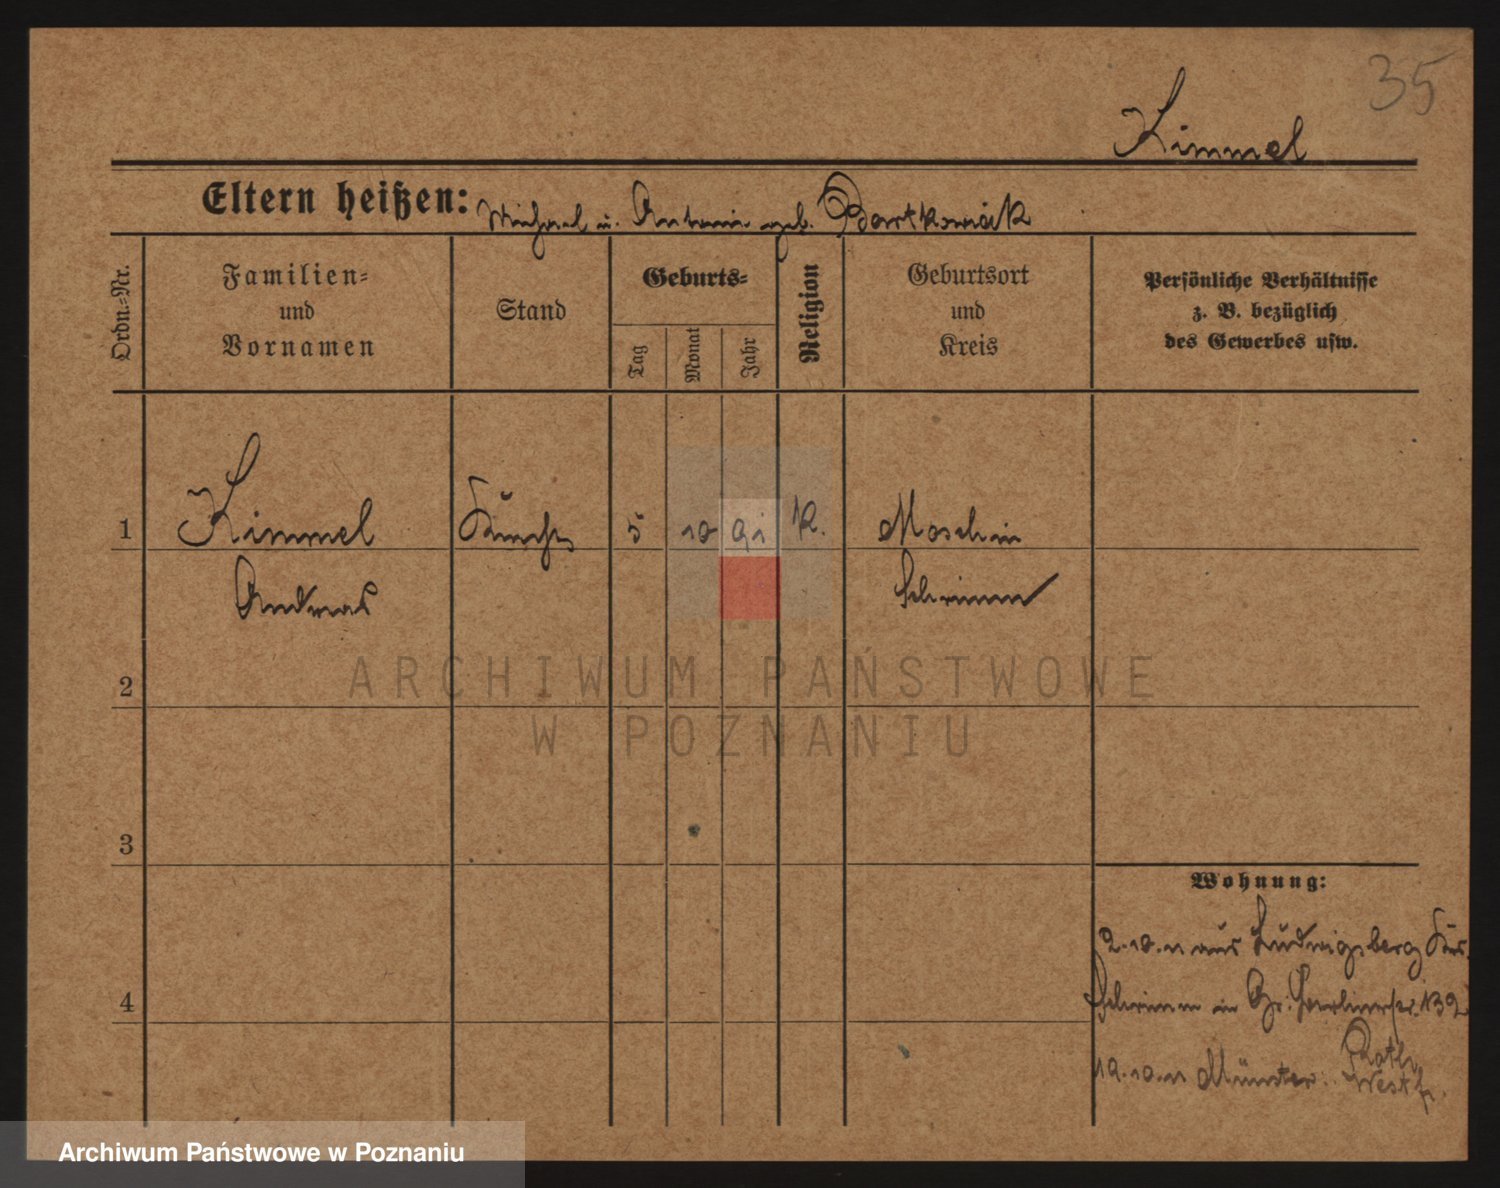 35
Kimmel
Eltern heißen: Michael u. Antonie geb. Bartkowiak
Ordn.-Nr.
Familien- und Vornamen
Stand
Geburts-
Tag
Monat
Jahr
Religion
Geburtsort und Kreis
Persönliche Verhältnisse z. B. bezüglich des Gewerbes usw.
1
Kimmel
5
10
91
K.
Moschin
Andreas
Schrimm
2
ARCHIWUM PAŃSTWOWE
W POZNANIU
3
Wohnung:
2.10.11 aus Ludwigsberg Krs.
Schrimm in Gr. 132
4
10.10.11 Münster.
Westf.
Archiwum Państwowe w Poznaniu